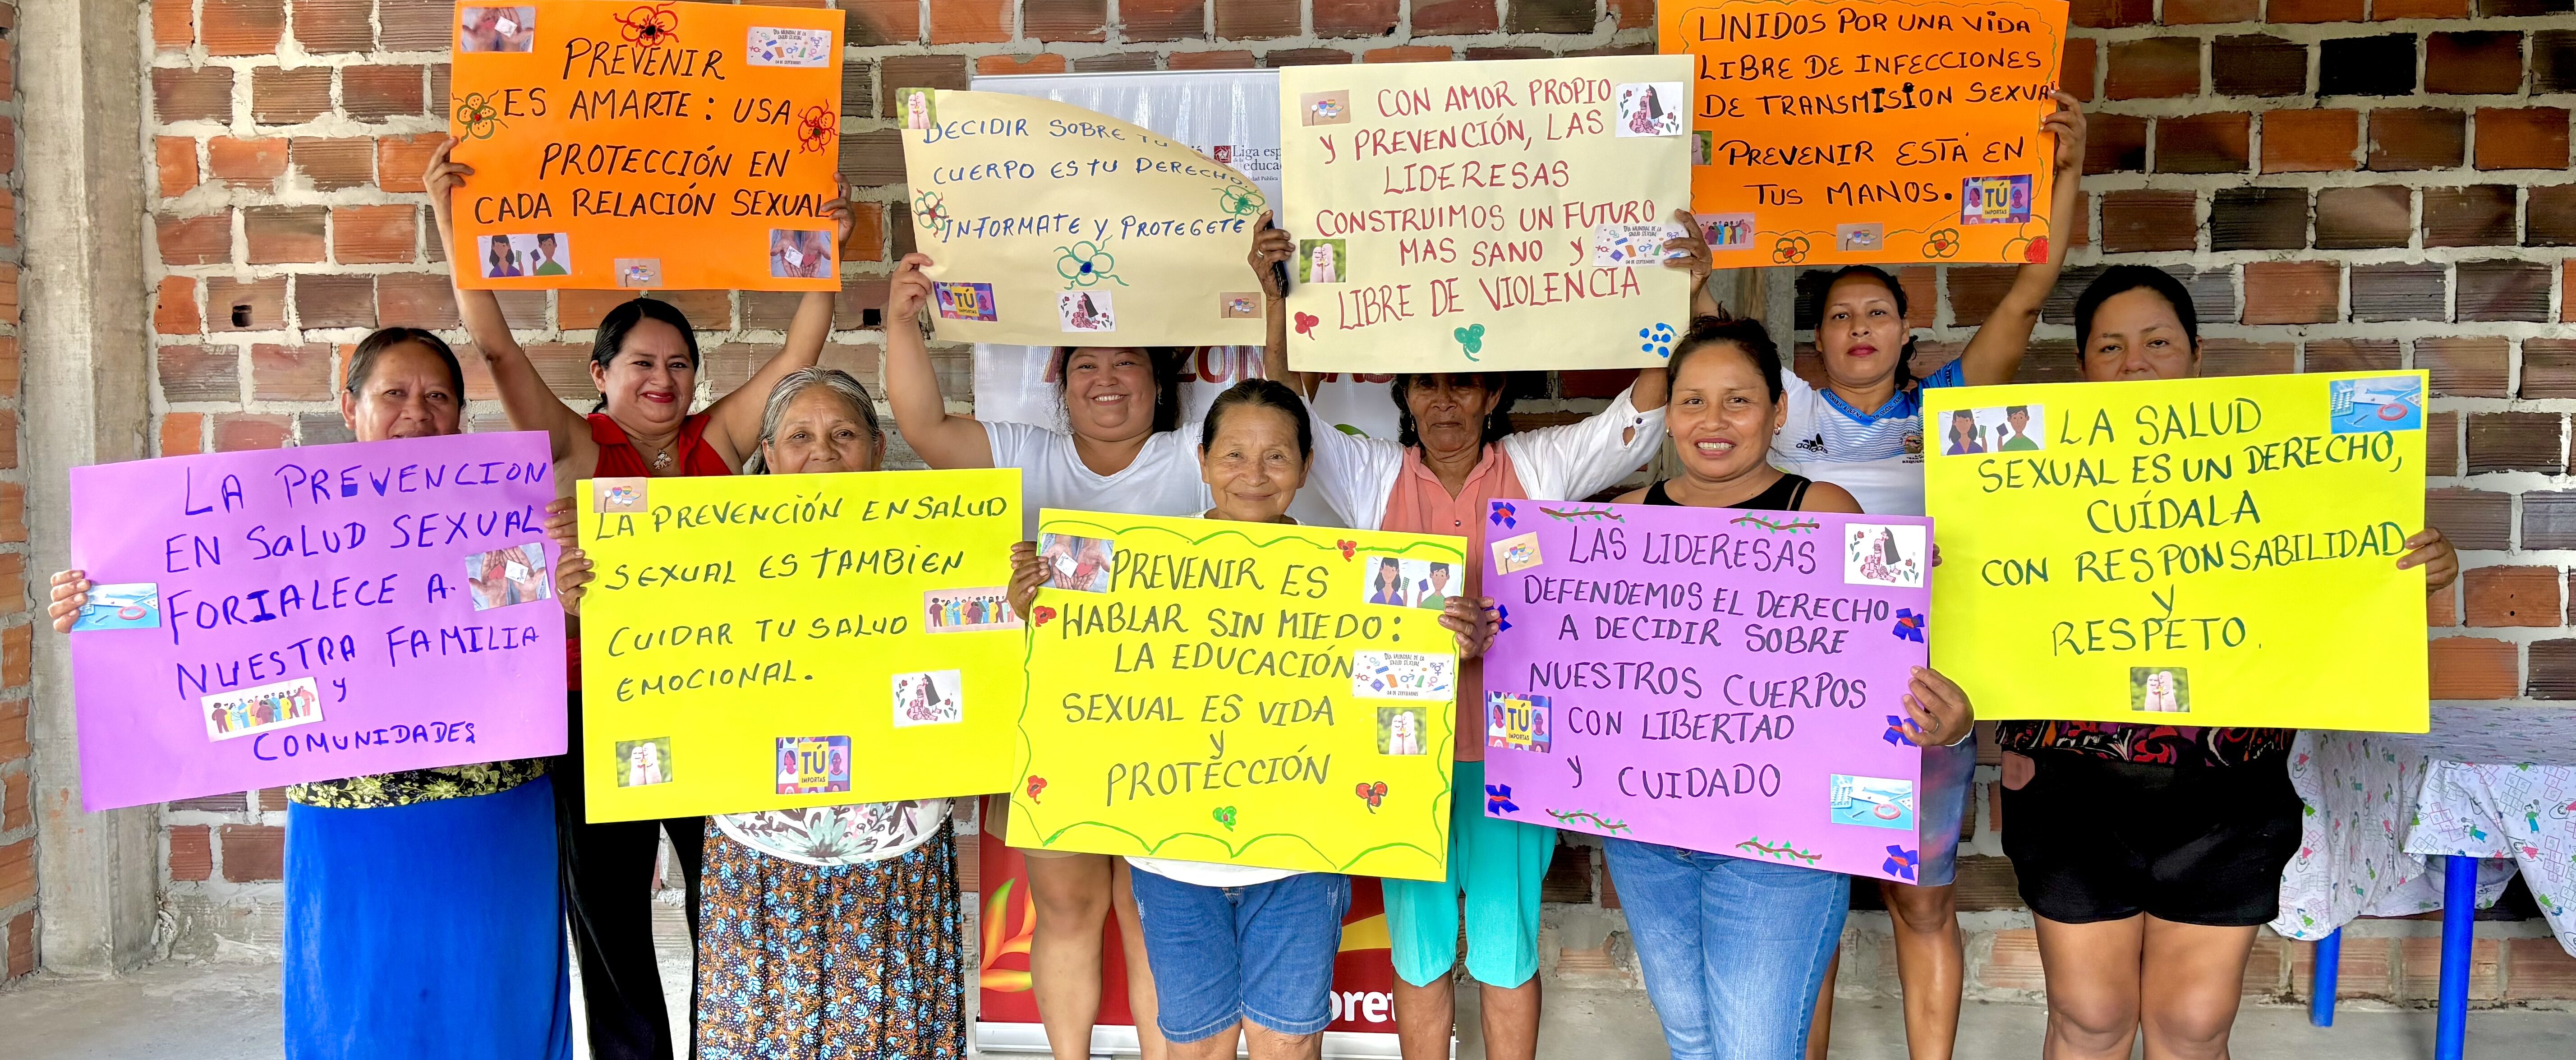 PREVENIR
ES AMARTE: USA
PROTECCIÓN EN
CADA RELACIÓN SEXUAL
DECIDIR SOBRE TU
CUERPO ES TU DERECHO.
INFORMATE Y PROTEGETE
TÚ
IMPORTAS
CON AMOR PROPIO
Y PREVENCIÓN, LAS
LIDERESAS
CONSTRUIMOS UN FUTURO
MAS SANO Y
LIBRE DE VIOLENCIA
UNIDOS POR UNA VIDA
LIBRE DE INFECCIONES
DE TRANSMISIÓN SEXUAL
PREVENIR ESTÁ EN
TUS MANOS.
TÚ
IMPORTAS
LA PREVENCION
EN SaLUD SEXUAL
FORIALECE A.
NUESTRA FAMILIA
Y
COMUNIDADES
LA PREVENCIÓN EN SALUD
SEXUAL ES TAMBIEN
CUIDAR TU SALUD
EMOCIONAL.
TÚ
IMPORTAS
PREVENIR ES
HABLAR SIN MIEDO:
LA EDUCACIÓN
SEXUAL ES VIDA
Y
PROTECCIÓN
DÍA MUNDIAL DE LA
SALUD SEXUAL
04 DE SEPTIEMBRE
LAS LIDERESAS
DEFENDEMOS EL DERECHO
A DECIDIR SOBRE
NUESTROS CUERPOS
CON LIBERTAD
Y CUIDADO
TÚ
IMPORTAS
LA SALUD
SEXUAL ES UN DERECHO,
CUÍDALA
CON RESPONSABILIDAD
Y
RESPETO.
Liga esp
educa
adidas
oret